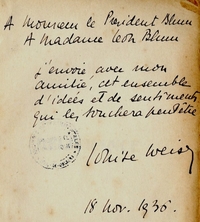 A Monsieur le Président Blum
A Madame Léon Blum
J'envoie avec mon
amitié, cet ensemble
d'idées et de sentiments
qui les touchera peut être
Louise Weiss
18 Nov. 1936.